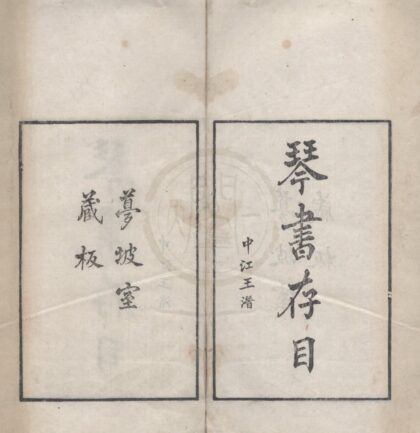 琴書存目
中江王潛
夢坡室
藏板